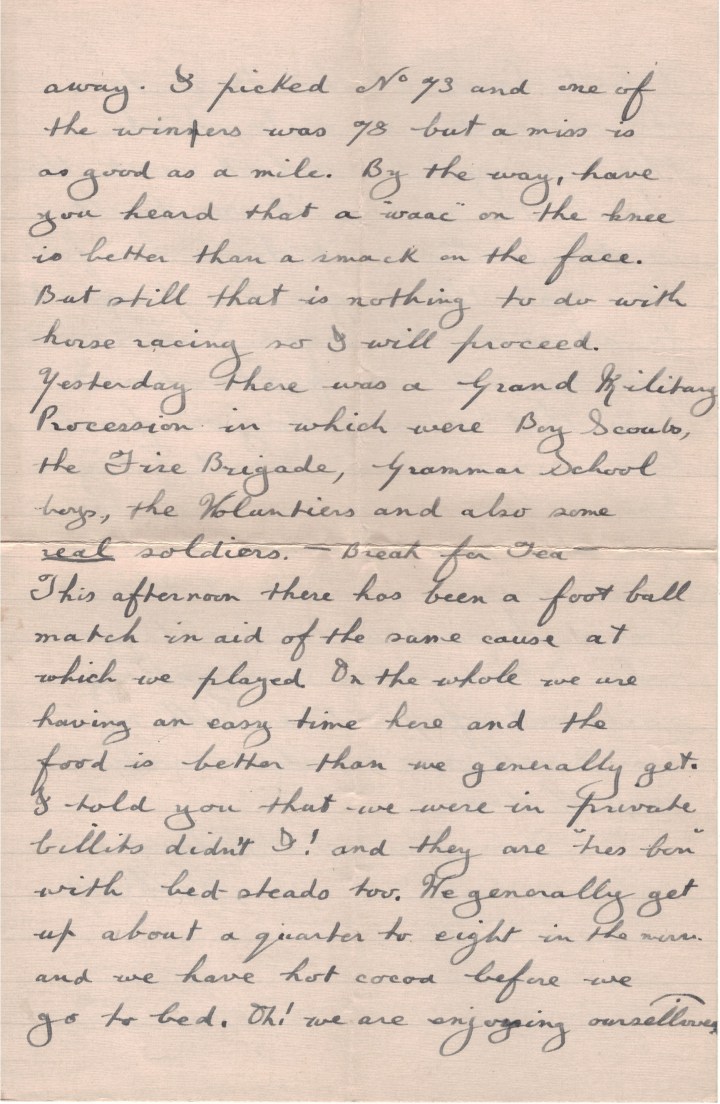 away. I picked No 73 and one of
the winners was 78 but a miss is
as good as a mile. By the way, have
you heard that a "waac" on the knee
is better than a smack on the face.
But still that is nothing to do with
horse racing so I will proceed.
Yesterday there was a Grand Military
Procession in which were Boy Scouts,
the Fire Brigade, Grammar School
boys, the Voluntiers and also some
real soldiers. — Break for Tea —
This afternoon there has been a foot ball
match in aid of the same cause at
which we played On the whole we are
having an easy time here and the
food is better than we generally get.
I told you that we were in private
billits didn't I! and they are "tres bon"
with bed-steads too. We generally get
up about a quarter to eight in the morn.
and we have hot cocoa before we
go to bed. Oh! we are enjoying ourselves